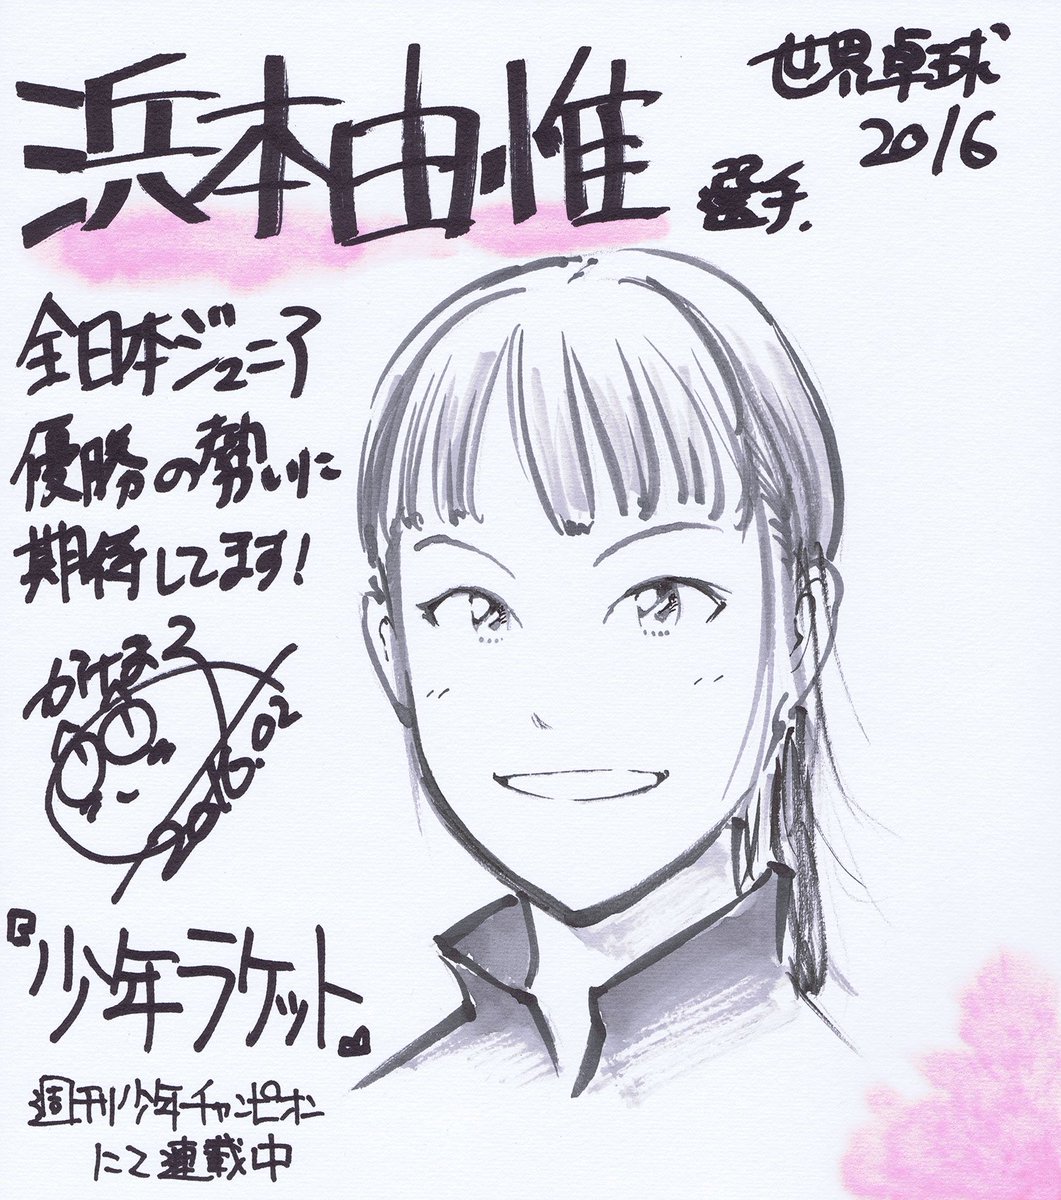 世界卓球
2016
浜本由惟
選手.
全日本ジュニア
優勝の勢いに
期待してます!
かけまる
2016.02
『少年ラケット』
週刊少年チャンピオン
にて連載中